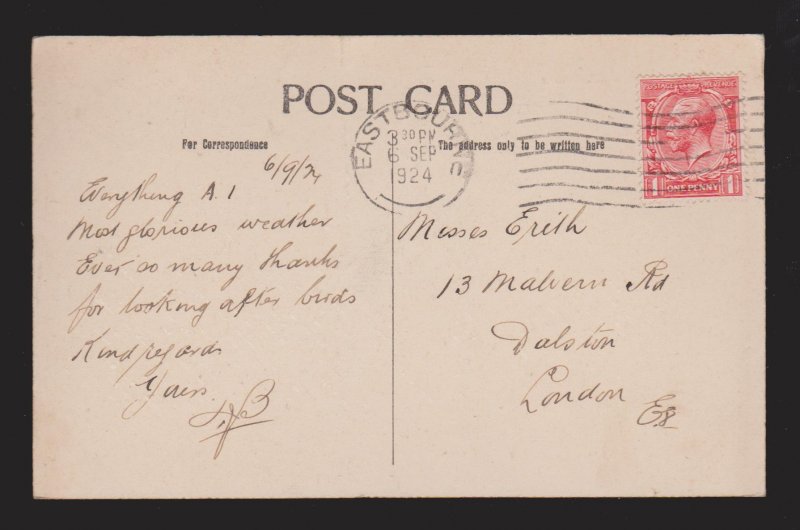 POST CARD
For Correspondence
The address only to be written here
EASTBOURNE
3 30 PM
6 SEP
1924
POSTAGE REVENUE
1 ONE PENNY 1
6/9/24
Everything A.1
Most glorious weather
Ever so many thanks
for looking after birds
Kind regards
Yours
Misses Erith
13 Malvern Rd
Dalston
London E8